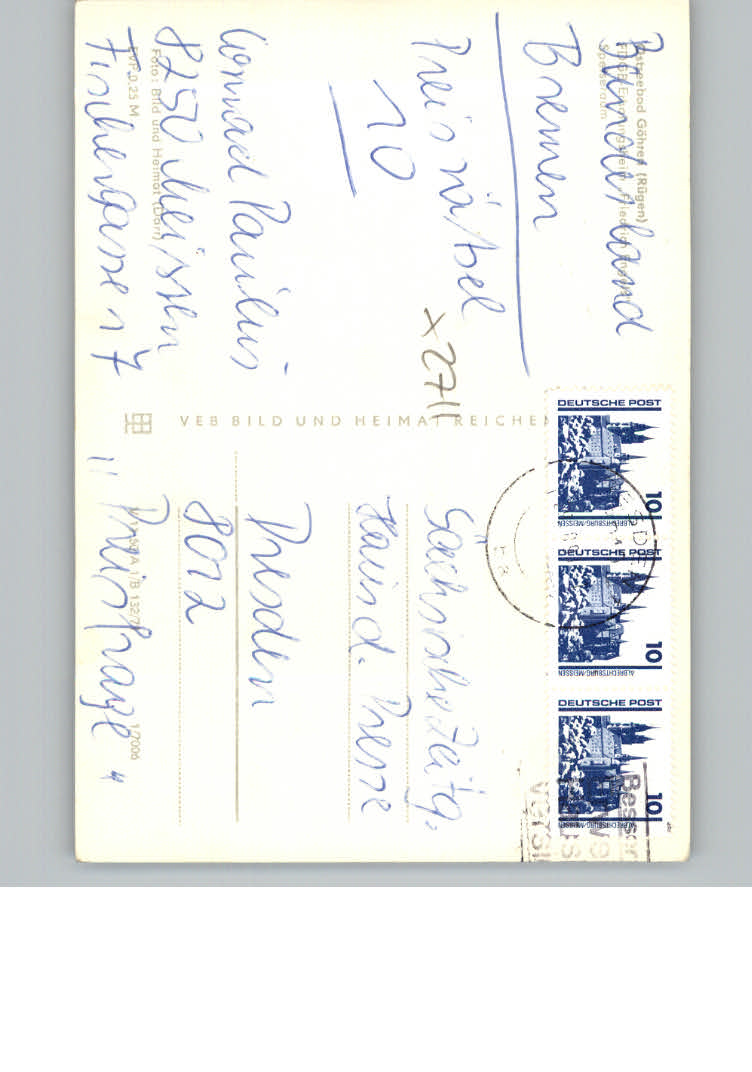 Ostseebad Göhren (Rügen)
FDGB-Erholungsheim „Friedrich Engels“
Speiseraum
Bundesland
Bremen
Preisrätsel
10
x2711
Conrad Paulus
8250 Meissen
Fischergasse 17
Foto: Bild und Heimat (Dörr)
EVP 0.25 M
VEB BILD UND HEIMAT REICHEN
DEUTSCHE POST
10
ALBRECHTSBURG-MEISSEN
DEUTSCHE POST
10
ALBRECHTSBURG-MEISSEN
DEUTSCHE POST
10
ALBRECHTSBURG-MEISSEN
Besser
Sächsische Zeitg.
Hausd. Presse
Dresden
8012
" Preisfrage "
1/7006